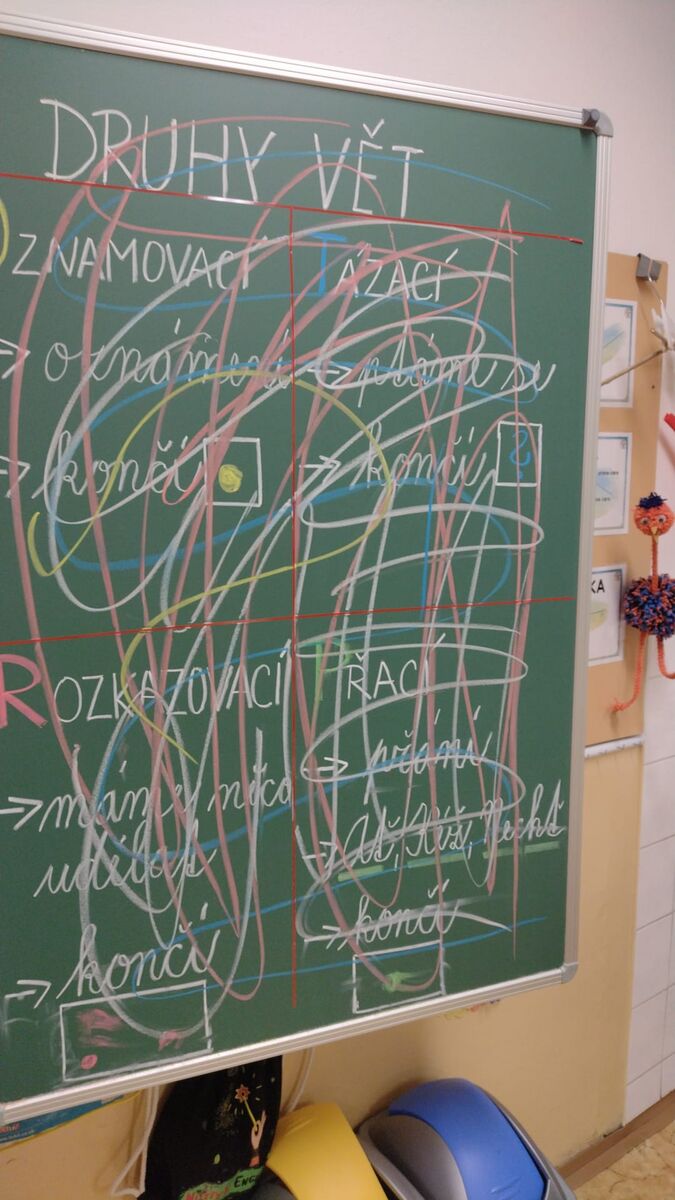 DRUHY VĚT
OZNAMOVACÍ
→ oznámení
→ končí .
TÁZACÍ
→ ptáme se
→ končí ?
ROZKAZOVACÍ
→ máme něco
udělat
→ končí
PŘACÍ
→ přání
→ Ať, Kéž, Nechť
→ končí
KA